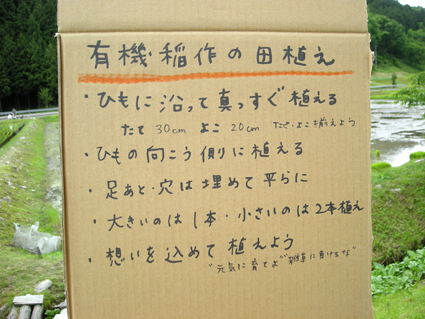 有機・稲作の田植え
・ひもに沿って真っすぐ植える
たて 30cm よこ 20cm たて・よこ揃えよう
・ひもの向こう側に植える
・足あと・穴は埋めて平らに
・大きいのは1本・小さいのは2本植え
・想いを込めて植えよう
"元気に育てよ" "雑草に負けるな"